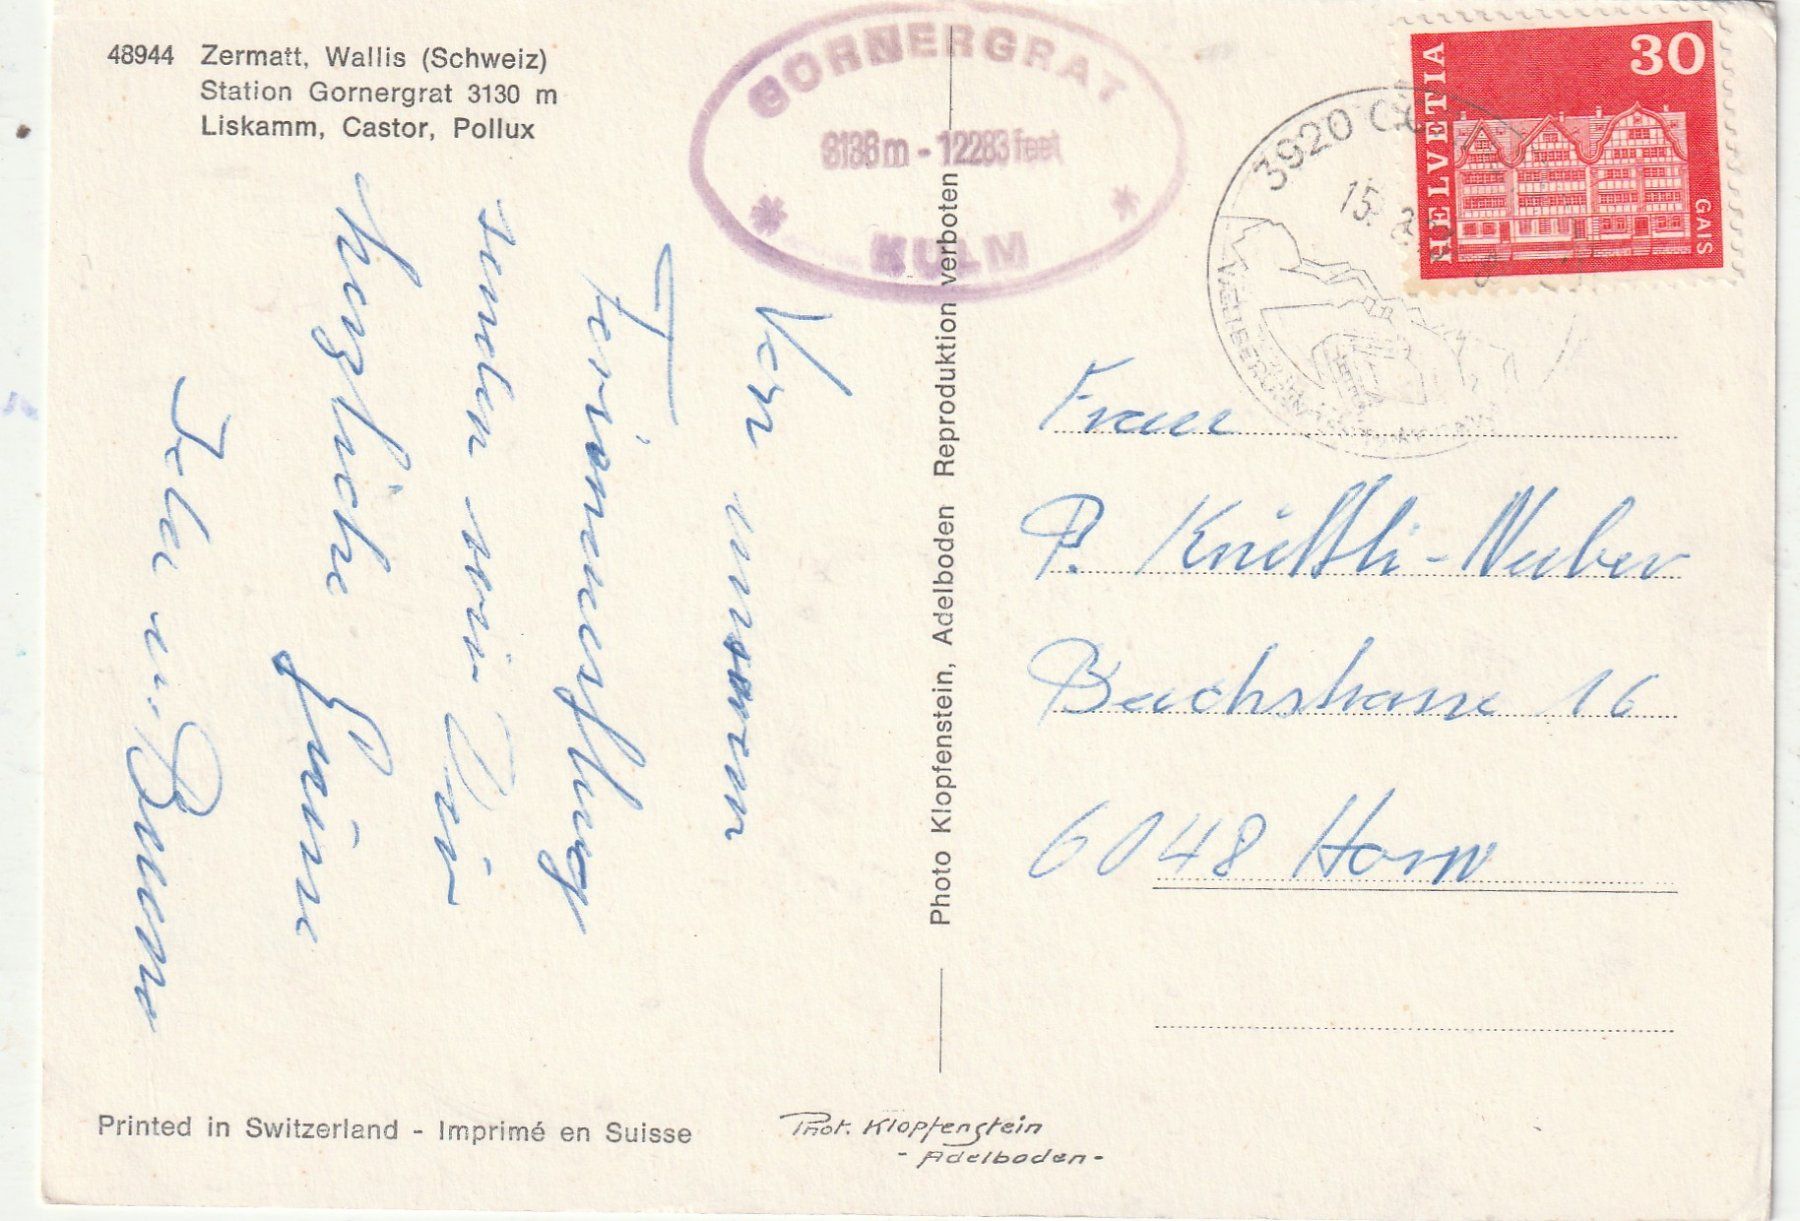 48944 Zermatt, Wallis (Schweiz)
Station Gornergrat 3130 m
Liskamm, Castor, Pollux
GORNERGRAT
3136 m - 12283 feet
KULM
3920
15.
HELVETIA
30
GAIS
Von unserem
Ferienausflug
senden wir Dir
herzliche Grüsse
u.
Photo Klopfenstein, Adelboden Reproduktion verboten
Frau
P. Knüttli-Huber
Bachstrasse 16
6048 Horw
Printed in Switzerland - Imprimé en Suisse
Phot. Klopfenstein
- Adelboden -